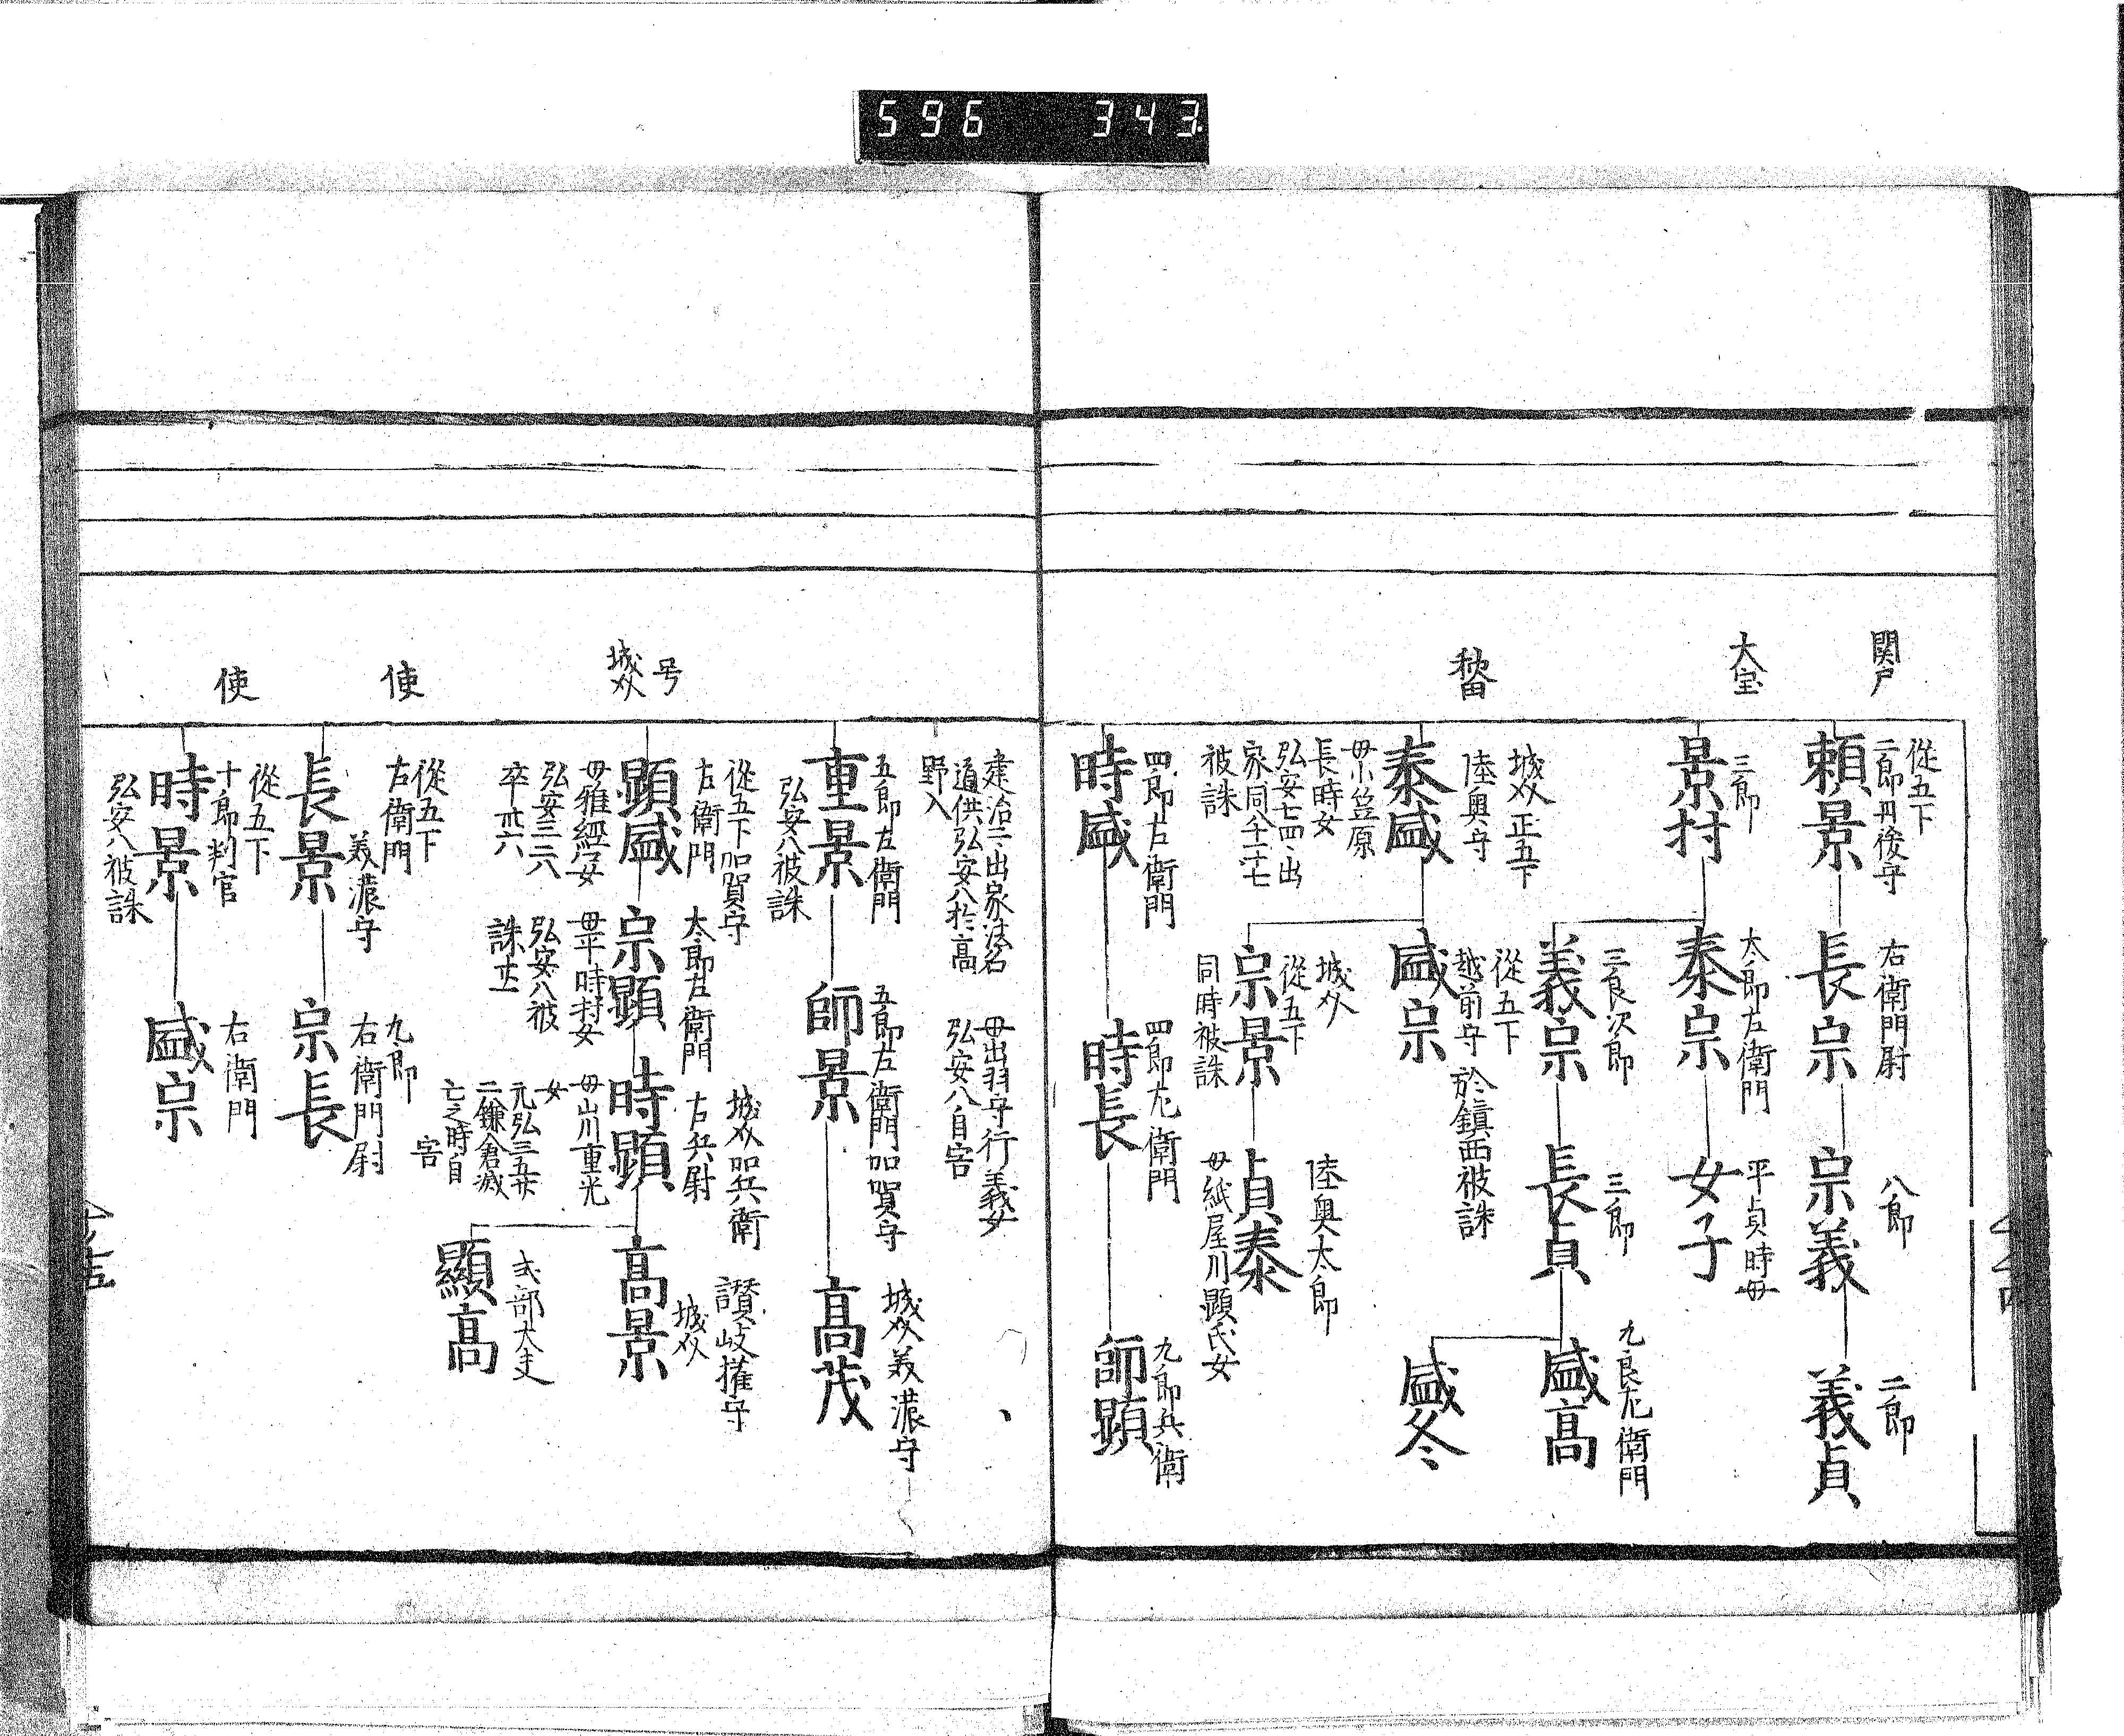 596 343
関戸
從五下
二郎丹後守
頼景
右衛門尉
長宗
八郎
宗義
二郎
義貞
大室
三郎
景村
太郎左衛門
泰宗
平貞時母
女子
三良次郎
義宗
三郎
長貞
九良左衛門
盛高
盛冬
秋田
城介 正五下
陸奥守
泰盛
母小笠原
長時女
弘安七四ヽ出
家同八十二七
被誅
從五下
越前守 於鎮西被誅
盛宗
城介
從五下
宗景
同時被誅
陸奥太郎
貞泰
母紙屋川顕氏女
四郎左衛門
時盛
四郎左衛門
時長
九郎兵衛
師顕
建治三ヽ出家法名
道供弘安八於高
野入
五郎左衛門
重景
弘安八被誅
母出羽守行義女
弘安八自害
五郎左衛門加賀守
師景
城介美濃守
高茂
号
城介
從五下加賀守
左衛門
顕盛
母雅經女
弘安三二六
卒卅六
太郎左衛門
宗顕
母平時村女
弘安八被
誅廿一
城介 兵衛
右兵尉
時顕
母山川重光
女
元弘三五廿
二鎌倉滅
亡之時自
害
讃岐権守
城介
高景
式部大夫
顕高
使
從五下
左衛門
美濃守
長景
九郎
右衛門尉
宗長
使
從五下
十郎判官
時景
弘安八被誅
右衛門
盛宗